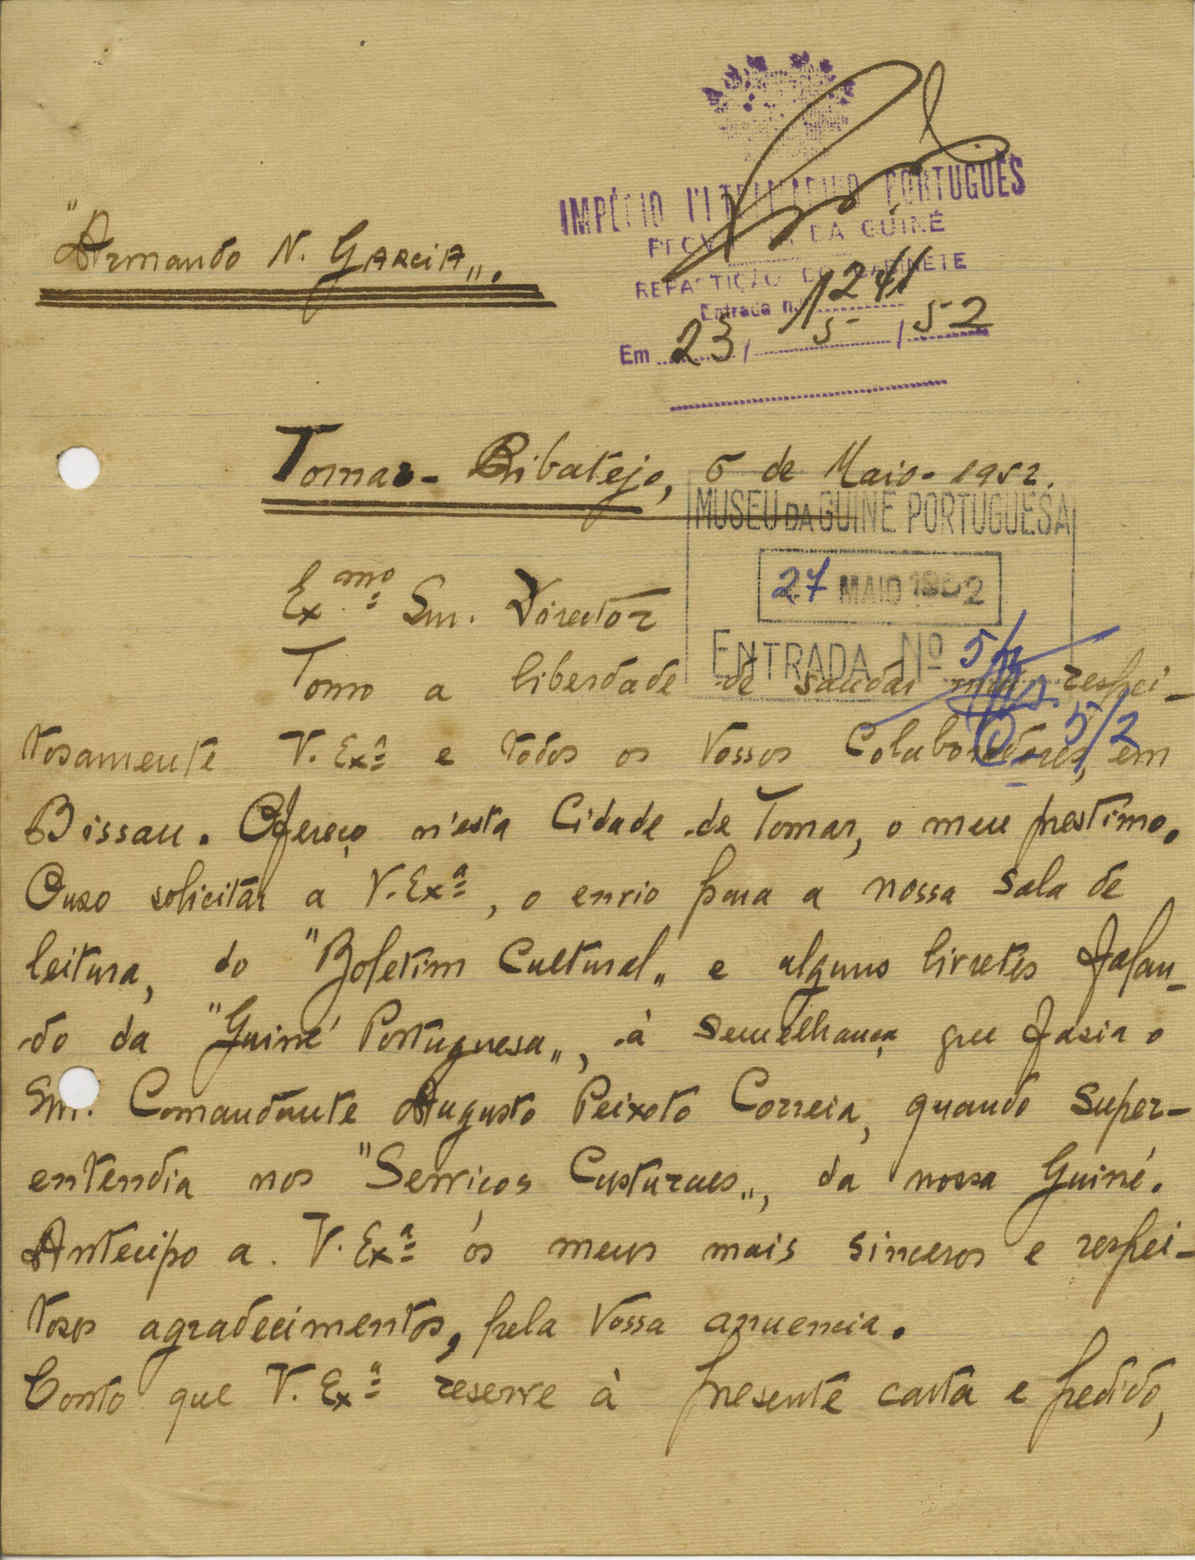 "Armando N. Garcia".
IMPÉRIO ULTRAMARINO PORTUGUÊS
PROVÍNCIA DA GUINÉ
REPARTIÇÃO DO GABINETE
Entrada n.º 1241
Em 23 / 5 / 52
Tomar - Ribatejo, 6 de Maio - 1952.
MUSEU DA GUINÉ PORTUGUESA
27 MAIO 1952
ENTRADA Nº
5/2
Ex.mo Snr. Director
Tomo a liberdade de saudar mui respei-
tosamente V. Exª e todos os Vossos Colaboradores, em
Bissau. Ofereço n'esta Cidade de Tomar, o meu prestimo.
Ouso solicitar a V. Exª, o envio para a nossa Sala de
leitura, do "Boletim Cultural" e alguns livretes falan-
do da "Guiné Portuguesa", à semelhança que fasia o
Snr. Comandante Augusto Peixoto Correia, quando super-
entendia nos "Serviços Custuraes", da nossa Guiné.
Antecipo a V. Exª os meus mais sinceros e respei-
tosos agradecimentos, pela Vossa anuencia.
Conto que V. Exª reserve à presente carta e pedido,